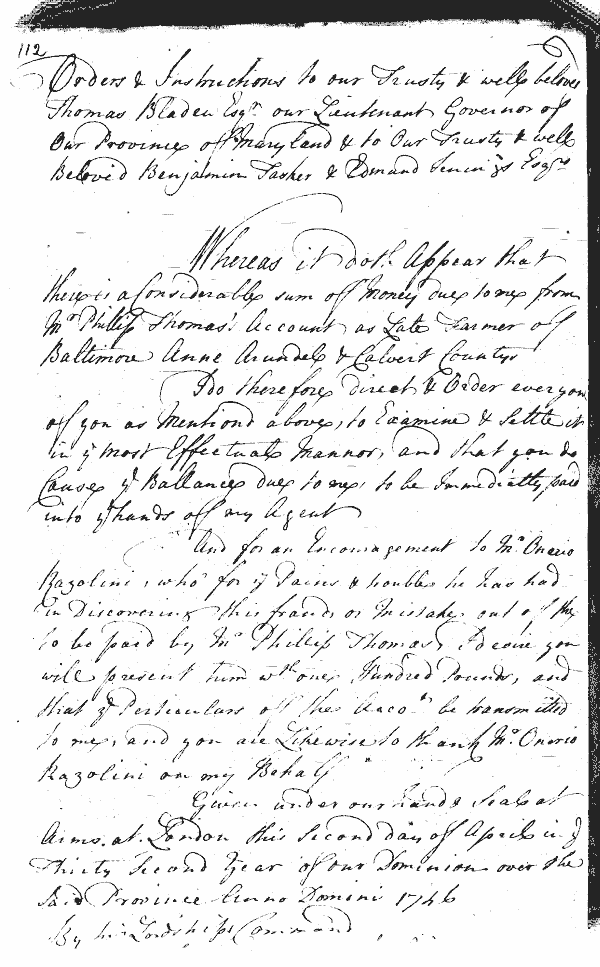 112
Orders & Instructions to our Trusty & well beloved
Thomas Bladen Esqr. our Lieutenant Governor of
Our Province of Maryland & to Our Trusty & well
Belov'd Benjamin Tasker & Edmund Jenings Esqrs
Whereas it doth Appear that
there is a Considerable sum of Money due to me from
Mr Phillip Thomas's Account as Late Farmer of
Baltimore Anne Arundel & Calvert Countys
I do therefore direct & Order every on
of you as Mentiond above, to Examine & Settle it
in ye most Effectual Mannor, and that you do
Cause ye Ballance due to me, to be Immediatly paid
into ye hands of my Agent
And for an Encouragement to Mr. Onorio
Razolini, who for ye Pains & trouble he has had
in Discovering this fraud or Mistake out of the
to be paid by Mr Phillip Thomas, I desire you
will present him wth one Hundred Pounds, and
that ye Perticulars of the Acco.t be transmitted
to me, and you are Likewise to thank Mr. Onorio
Razolini on my Behalf
Given under our hand & Seal at
Arms at London this Second day of April in ye
Thirty Second Year of our Dominion over the
Said Province Anno Domini 1746
By his Lordships Command